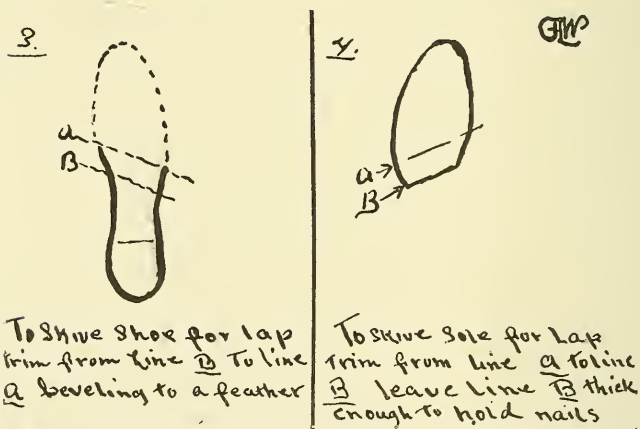 3.
a
B
To Skive Shoe for lap
trim from line B To line
a beveling to a feather
4.
a
B
To skive Sole for Lap
Trim from line a to line
B leave line B thick
enough to hold nails